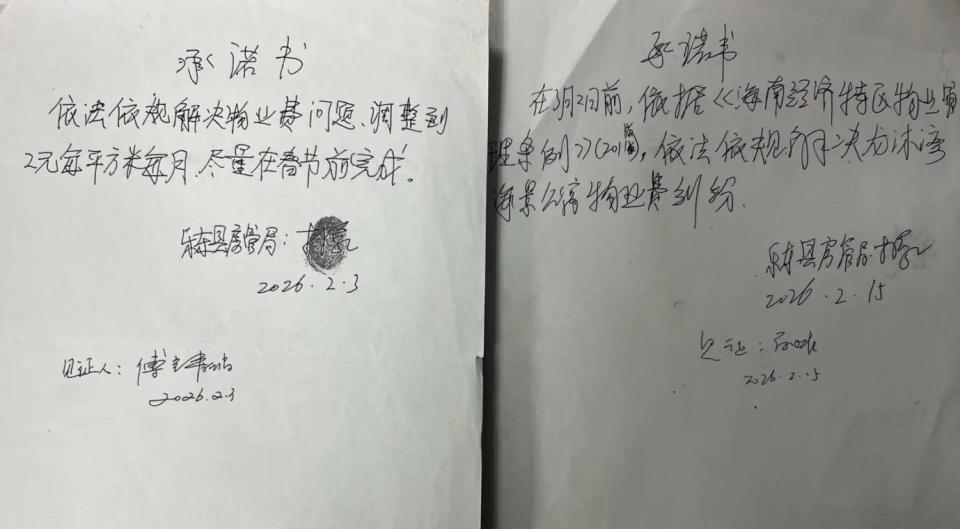 承诺书
依法依规解决物业费问题、调整到
2元每平方米每月.尽量在春节前完成。
乐东县房管局:
2026.2.3
见证人:傅
2026.2.3
承诺书
在3月2日前,依据《海南经济特区物业管
理条例》(201),依法依规解决龙沐湾
海景公寓物业费纠纷.
乐东县房管局
2026.2.15
见证:
2026.2.15